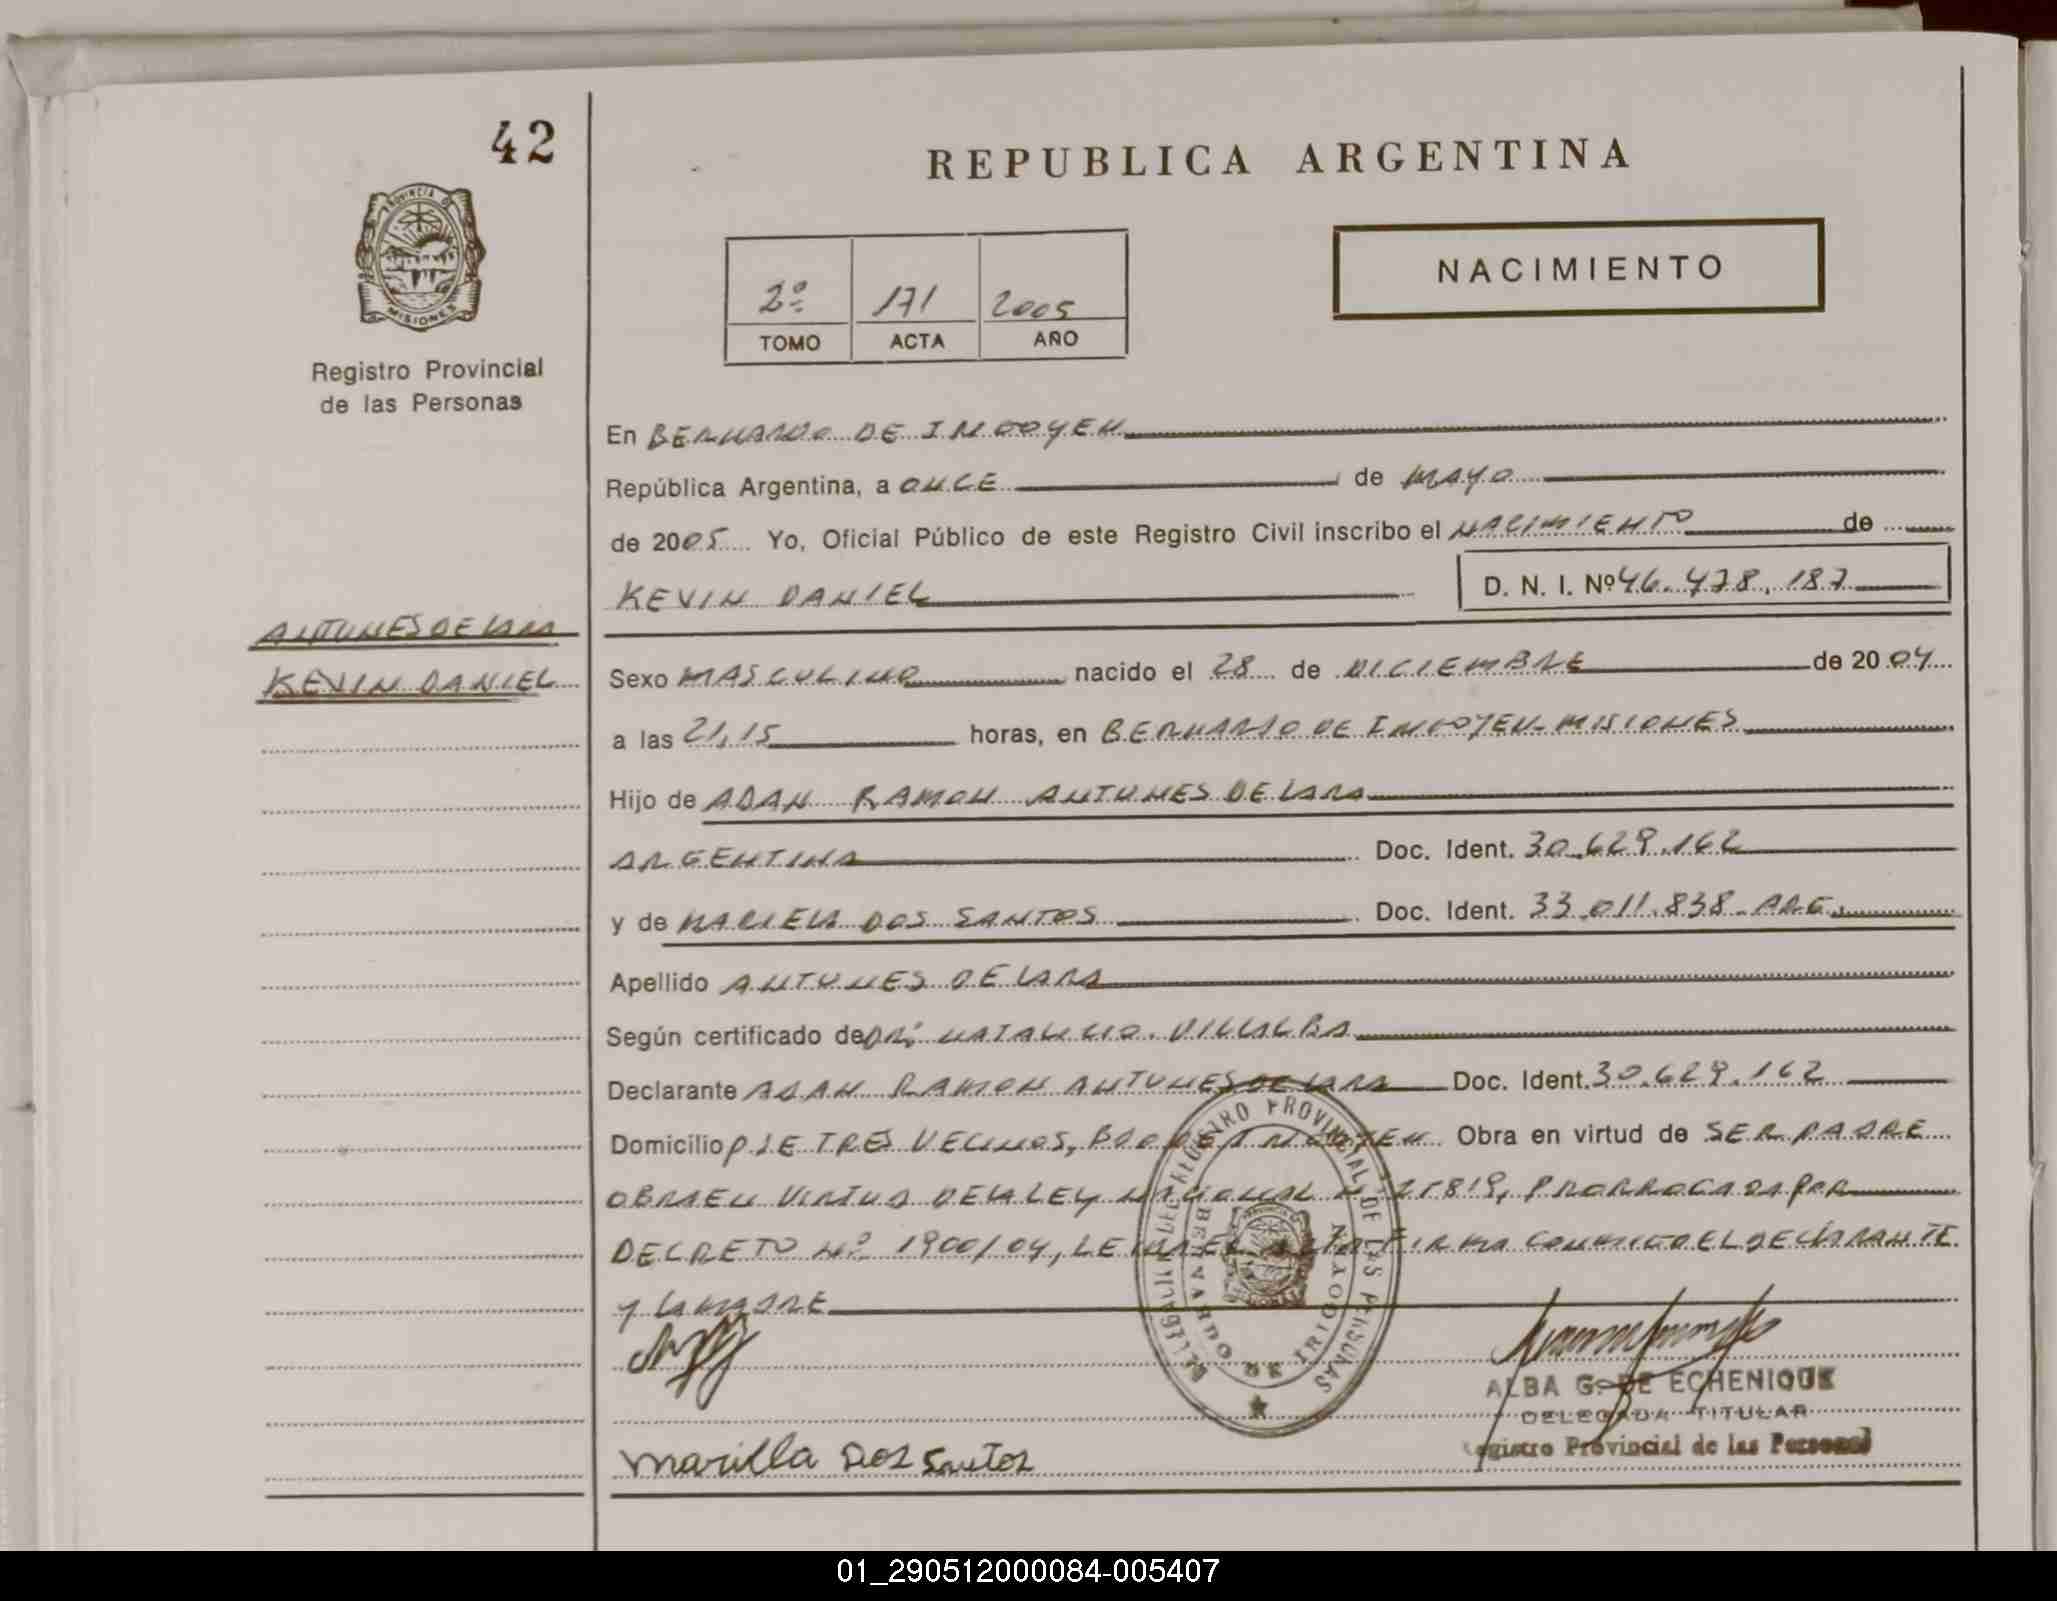 42
REPUBLICA ARGENTINA
PROVINCIA DE
MISIONES
NACIMIENTO
2º 171 2005
TOMO ACTA AÑO
Registro Provincial
de las Personas
En BERNARDO DE IRIGOYEN
República Argentina, a ONCE de MAYO
de 2005 Yo, Oficial Público de este Registro Civil inscribo el NACIMIENTO de
KEVIN DANIEL D. N. I. Nº 46.478.187
ANTUNES DE LARA
KEVIN DANIEL
Sexo MASCULINO nacido el 28 de DICIEMBRE de 2004
a las 21,15 horas, en BERNARDO DE IRIGOYEN-MISIONES
Hijo de ADAN RAMON ANTUNES DE LARA
ARGENTINA Doc. Ident. 30.629.162
y de MARIELA DOS SANTOS Doc. Ident. 33.011.838-ARG.
Apellido ANTUNES DE LARA
Según certificado de DR. NATALICIO VILLALBA
Declarante ADAN RAMON ANTUNES DE LARA Doc. Ident. 30.629.162
Domicilio PJE TRES VECINOS, BDO DE IRIGOYEN Obra en virtud de SER PADRE
OBRA EN VIRTUD DE LA LEY NACIONAL Nº 25819, PRORROGADA POR
DECRETO Nº 1900/04, LEIDA EL ACTA FIRMA CONMIGO EL DECLARANTE
Y LA MADRE
REGISTRO PROVINCIAL DE LAS PERSONAS
BERNARDO DE IRIGOYEN
ALBA G. DE ECHENIQUE
DELEGADA TITULAR
Registro Provincial de las Personas
Mariela Dos Santos
01_290512000084-005407